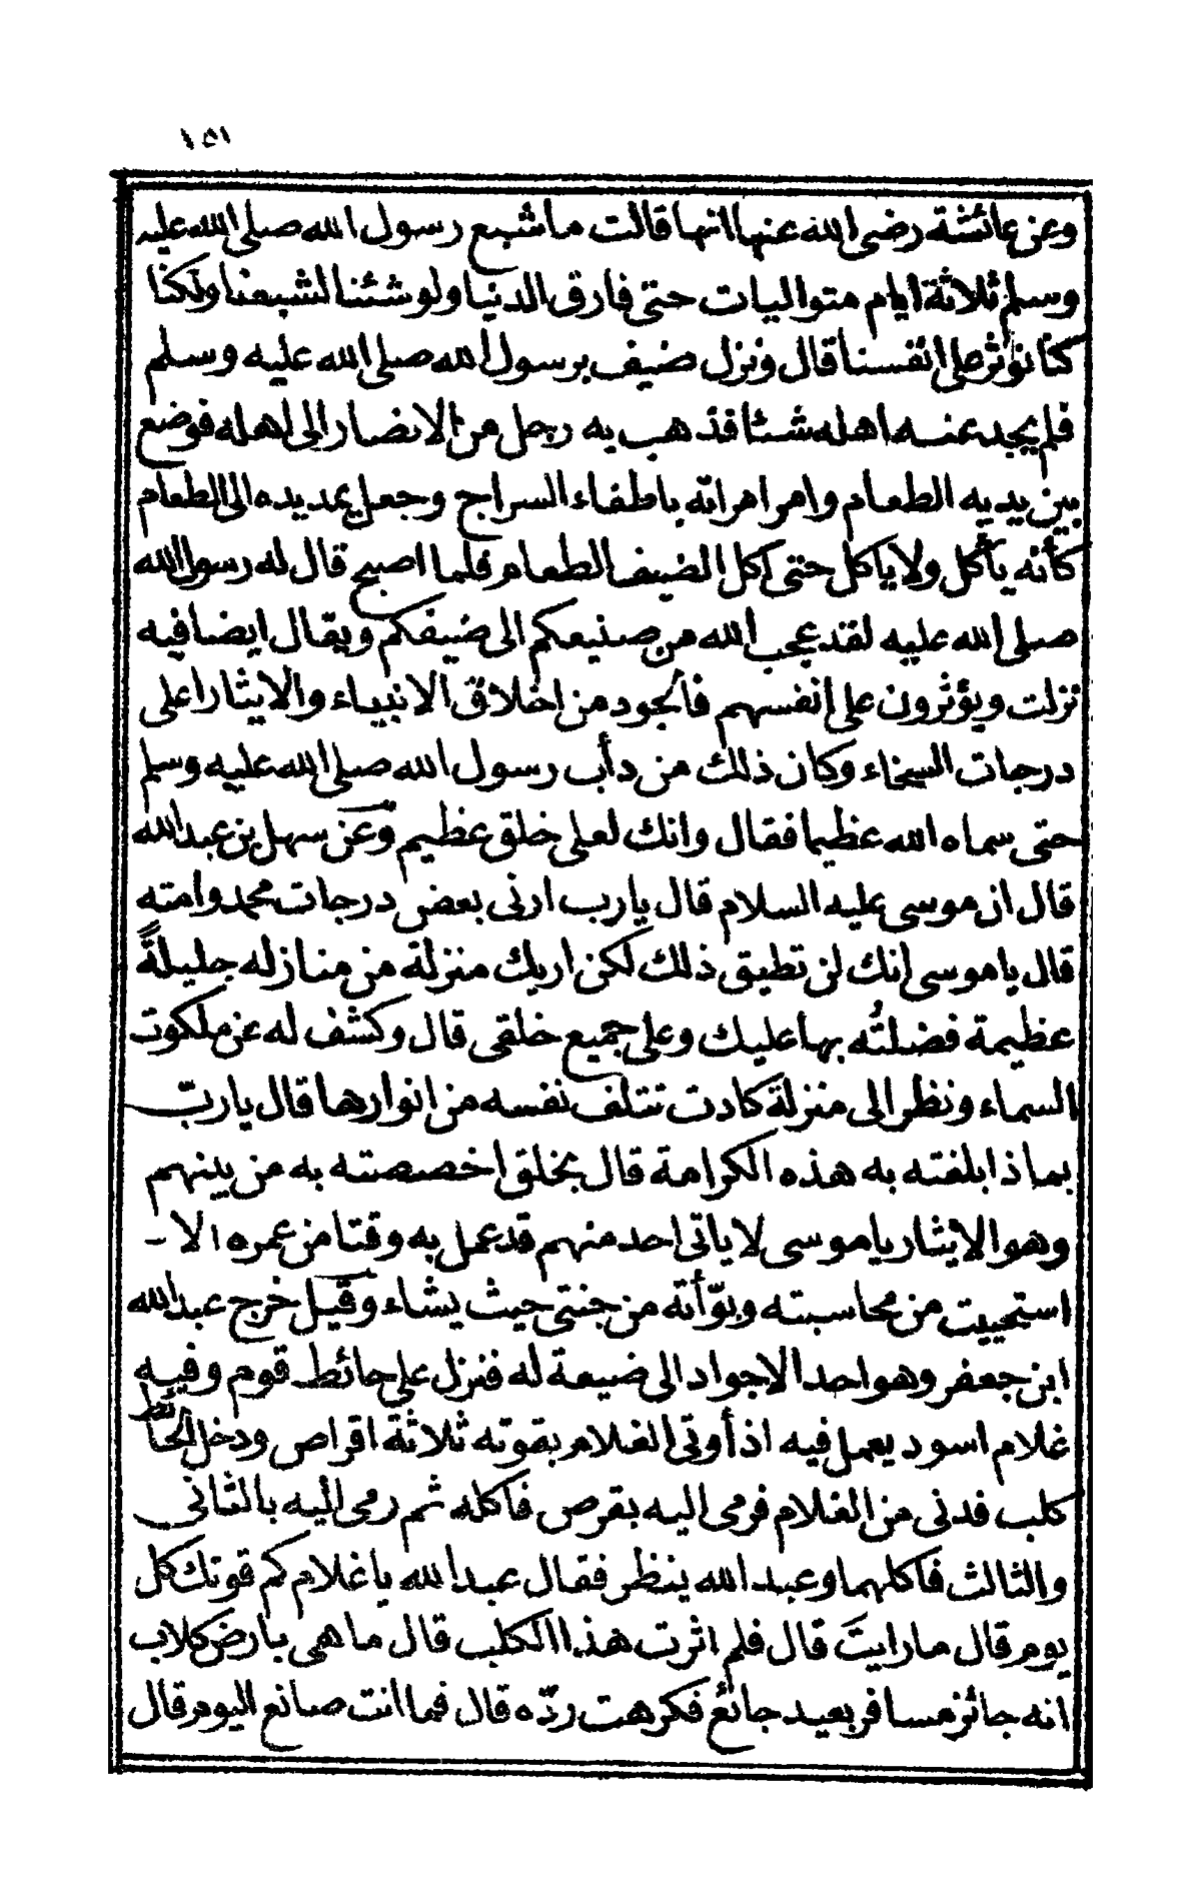 ١٥١
وعن عائشة رضى الله عنها انها قالت ما شبع رسول الله صلى الله عليه
وسلم ثلاثة ايام متواليات حتى فارق الدنيا ولو شئنا لشبعنا ولكنا
كنا نؤثر على انفسنا قال ونزل ضيف برسول الله صلى الله عليه وسلم
فلم يجد عند اهله شئا فذهب به رجل من الانصار الى اهله فوضع
بين يديه الطعام وامر امراته باطفاء السراج وجعل يمد يده الى الطعام
كأنه يأكل ولا ياكل حتى اكل الضيف الطعام فلما اصبح قال له رسول الله
صلى الله عليه لقد عجب الله من صنيعكم الى ضيفكم ويقال ايضا فيه
نزلت ويؤثرون على انفسهم فالجود من اخلاق الانبياء والايثار اعلى
درجات السخاء وكان ذلك من دأب رسول الله صلى الله عليه وسلم
حتى سماه الله عظيما فقال وانك لعلى خلق عظيم وعن سهل بن عبد الله
قال ان موسى عليه السلام قال يا رب ارنى بعض درجات محمد وامته
قال يا موسى انك لن تطيق ذلك لكن اريك منزلة من منازله جليلةً
عظيمة فضلتُه بها عليك وعلى جميع خلقى قال وكشف له عن ملكوت
السماء ونظر الى منزلة كادت تتلف نفسه من انوارها قال يا ربّ
بماذا بلغته به هذه الكرامة قال بخلق اخصصته به من بينهم
وهو الايثار يا موسى لا ياتى احد منهم قد عمل به وقتا من عمره الا -
استحييت من محاسبته وبوّأته من جنتى حيث يشاء وقيل خرج عبد الله
ابن جعفر وهو احد الاجواد الى ضيعة له فنزل على حائط قوم وفيه
غلام اسود يعمل فيه اذ أوتى الغلام بقوته ثلاثة اقراص ودخل الحائط
كلب فدنى من الغلام فرمى اليه بقرص فاكله ثم رمى اليه بالثانى
والثالث فاكلهما وعبد الله ينظر فقال عبد الله يا غلام كم قوتك كل
يوم قال ما رايتَ قال فلم اثرت هذا الكلب قال ما هى بارض كلاب
انه جائز مسافر بعيد جائع فكرهت ردّه قال فما انت صانع اليوم قال